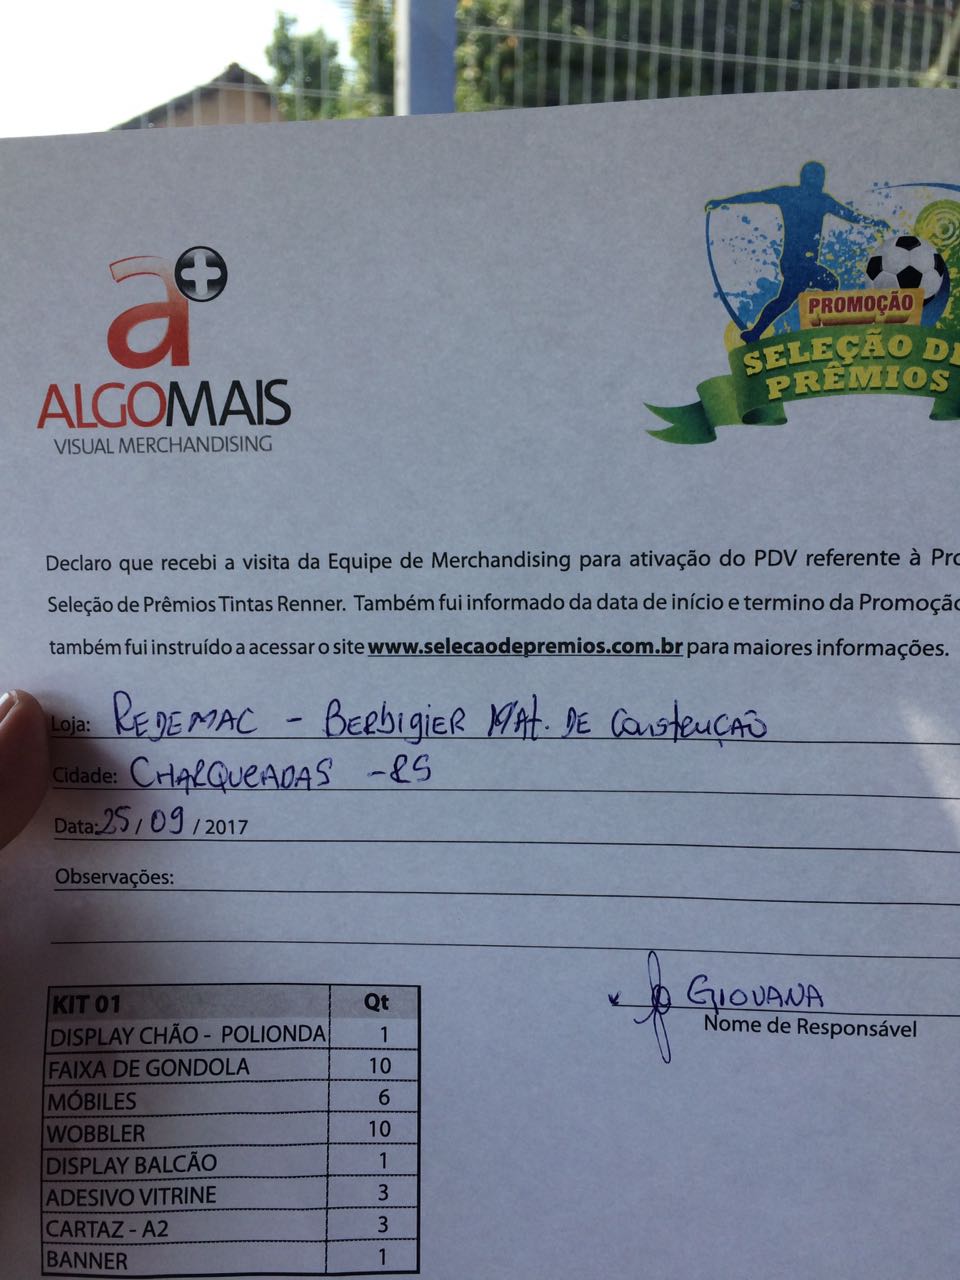 a+
ALGOMAIS
VISUAL MERCHANDISING
PROMOÇÃO
SELEÇÃO DE
PRÊMIOS
Declaro que recebi a visita da Equipe de Merchandising para ativação do PDV referente à Pro
Seleção de Prêmios Tintas Renner. Também fui informado da data de início e termino da Promoção
também fui instruído a acessar o site www.selecaodepremios.com.br para maiores informações.
Loja: REDEMAC - BERBIGIER MAT. DE CONSTRUÇÃO
Cidade: CHARQUEADAS - RS
Data: 25 / 09 / 2017
Observações:
GIOVANA
Nome de Responsável
KIT 01 Qt
DISPLAY CHÃO - POLIONDA 1
FAIXA DE GONDOLA 10
MÓBILES 6
WOBBLER 10
DISPLAY BALCÃO 1
ADESIVO VITRINE 3
CARTAZ - A2 3
BANNER 1